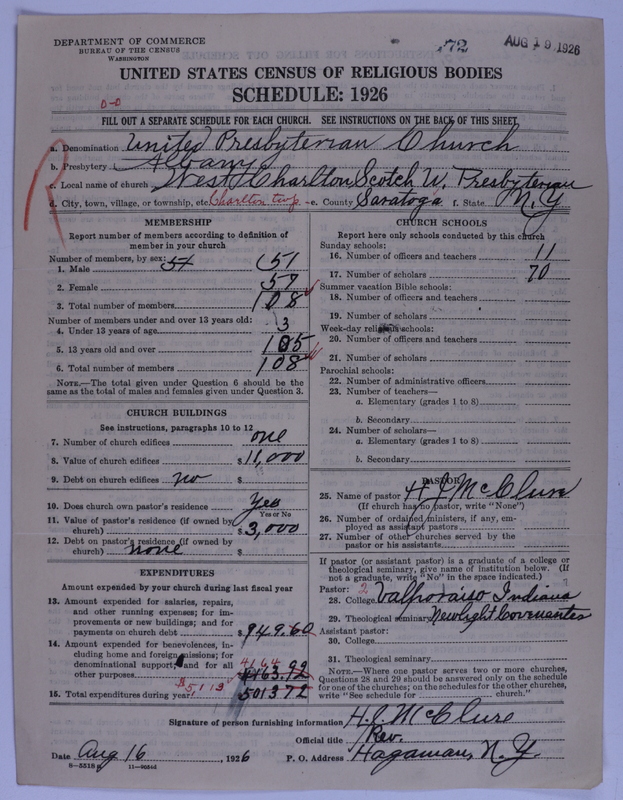 DEPARTMENT OF COMMERCE
BUREAU OF THE CENSUS
WASHINGTON
172
AUG 19 1926
UNITED STATES CENSUS OF RELIGIOUS BODIES
SCHEDULE: 1926
0-0
FILL OUT A SEPARATE SCHEDULE FOR EACH CHURCH. SEE INSTRUCTIONS ON THE BACK OF THIS SHEET
a. Denomination United Presbyterian Church
b. Presbytery Albany
c. Local name of church West Charlton Scotch U. Presbyterian
d. City, town, village, or township, etc. Charlton twp e. County Saratoga f. State N.Y
MEMBERSHIP
Report number of members according to definition of
member in your church
Number of members, by sex:
1. Male 51 51
2. Female 57
3. Total number of members 108
Number of members under and over 13 years old:
4. Under 13 years of age 3
5. 13 years old and over 105
6. Total number of members 108
NOTE.—The total given under Question 6 should be
same as the total of males and females given under Question 3.
CHURCH BUILDINGS
See instructions, paragraphs 10 to 12
7. Number of church edifices one
8. Value of church edifices $11,000
9. Debt on church edifices no $
10. Does church own pastor's residence Yes
Yes or No
11. Value of pastor's residence (if owned by
church) $3,000
12. Debt on pastor's residence (if owned by
church) none $
EXPENDITURES
Amount expended by your church during last fiscal year
13. Amount expended for salaries, repairs,
and other running expenses; for im-
provements or new buildings; and for
payments on church debt $949.60
14. Amount expended for benevolences, in-
cluding home and foreign missions; for
denominational support; and for all
other purposes 4164 4163.92
15. Total expenditures during year $5113 501372
CHURCH SCHOOLS
Report here only schools conducted by this church
Sunday schools:
16. Number of officers and teachers 11
17. Number of scholars 70
Summer vacation Bible schools:
18. Number of officers and teachers
19. Number of scholars
Week-day religious schools:
20. Number of officers and teachers
21. Number of scholars
Parochial schools:
22. Number of administrative officers
23. Number of teachers—
a. Elementary (grades 1 to 8)
b. Secondary
24. Number of scholars—
a. Elementary (grades 1 to 8)
b. Secondary
PASTOR
25. Name of pastor H J McClure
(If church has no pastor, write "None")
26. Number of ordained ministers, if any, em-
ployed as assistant pastors
27. Number of other churches served by the
pastor or his assistants
If pastor (or assistant pastor) is a graduate of a college or
theological seminary, give name of institution below. (If
not a graduate, write "No" in the space indicated.)
Pastor: 2
28. College Valparaiso Indiana
29. Theological seminary Newlight Covenanter
Assistant pastor:
30. College
31. Theological seminary
NOTE.—Where one pastor serves two or more churches,
Questions 28 and 29 should be answered only on the schedule
for one of the churches; on the schedules for the other churches,
write "See schedule for church."
Signature of person furnishing information H.J. McClure
Official title Rev.
Date Aug 16, 1926 P. O. Address Hagaman, N.Y.
8-5518 11-9656